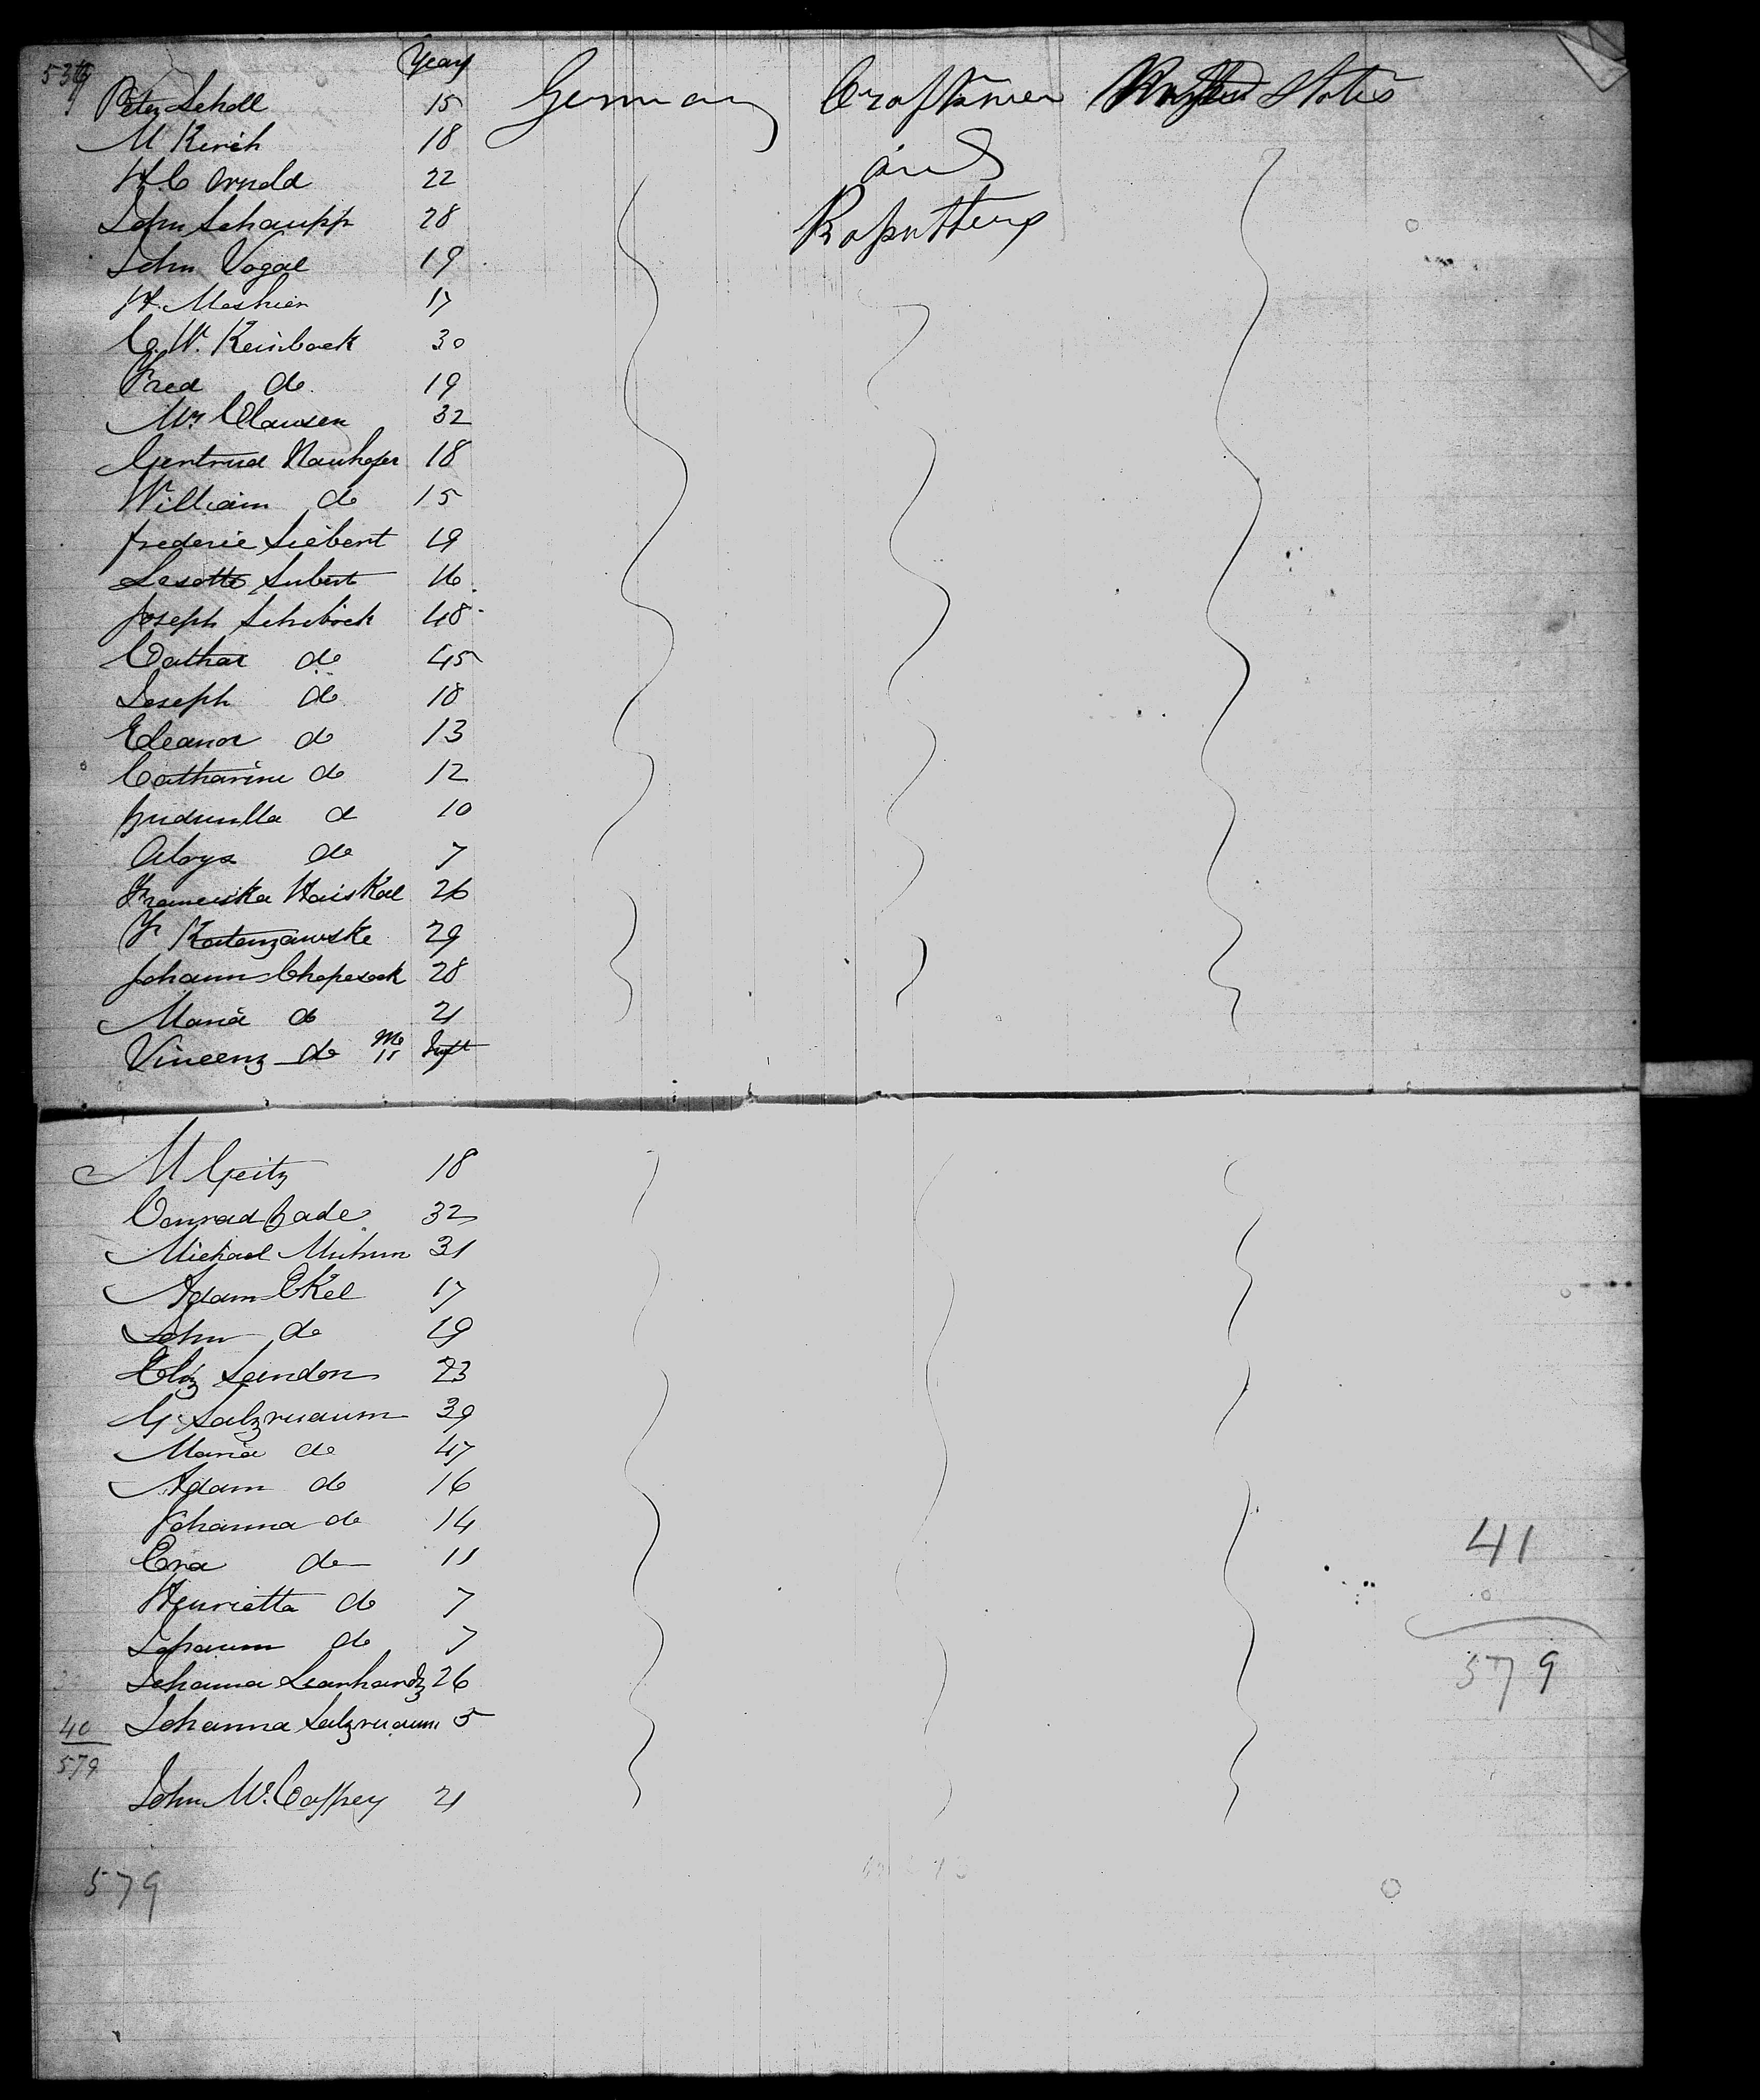 539 Years
Peter Scholl 15 Germany Craftsmen United States
M Kirch 18 and
H. C Arnold 22
John Schaupp 28
John Vogal 19
H. Meshier 17
C. W. Reinbock 30
Fred do 19
Mr Clausen 32
Gertrud Nauhofer 18
William do 15
frederic Siebert 19
Lesotte Subert 16
Joseph Schiböck 48
Cathar do 45
Joseph do 18
Eleanor do 13
Catharine do 12
do 10
Aloys do 7
Franciska Haiskal 26
Fr Katenzawske 29
Johann Chopesock 28
Maria do 21
Vincenz do Mo 11 Inft
M Geitz 18
Conrad Zade 32
Michael 31
Adam Ekel 17
John do 19
Eliz Sandon 23
G. Salzmaum 39
Maria do 47
Adam do 16
Johanna do 14
Eva do 11 41
Henrietta do 7
Johann do 7
Johanna Leanhardz 26 579
40 Johanna Salzmaum 5
579
John McCaffrey 21
579